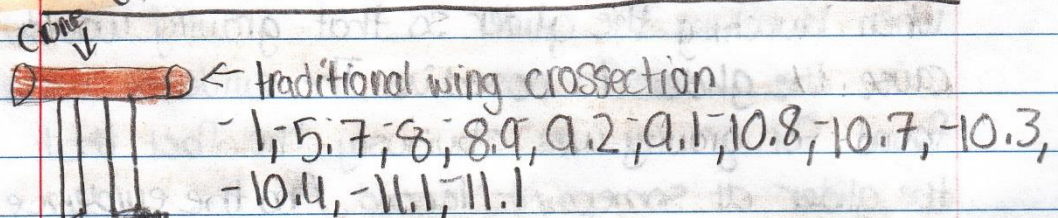 CONE
↓
← traditional wing crossection
-1, -5.7, -8, -8.9, -9.2, -9.1, -10.8, -10.7, -10.3,
-10.4, -11.1, -11.1